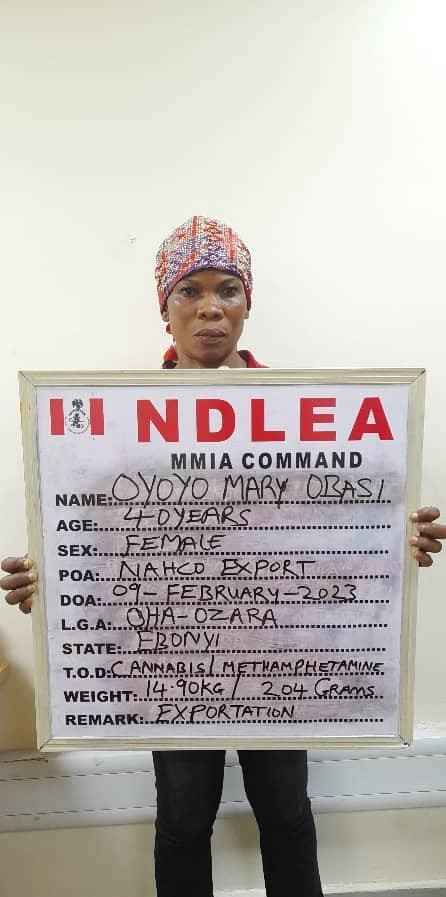 NDLEA
MMIA COMMAND
NAME: OYOYO MARY OBASI
AGE: 40YEARS
SEX: FEMALE
POA: NAHCO EXPORT
DOA: 09-FEBRUARY-2023
L.G.A: OHA-OZARA
STATE: EBONYI
T.O.D: CANNABIS/METHAMPHETAMINE
WEIGHT: 14.90KG/ 204 GRAMS
REMARK: EXPORTATION